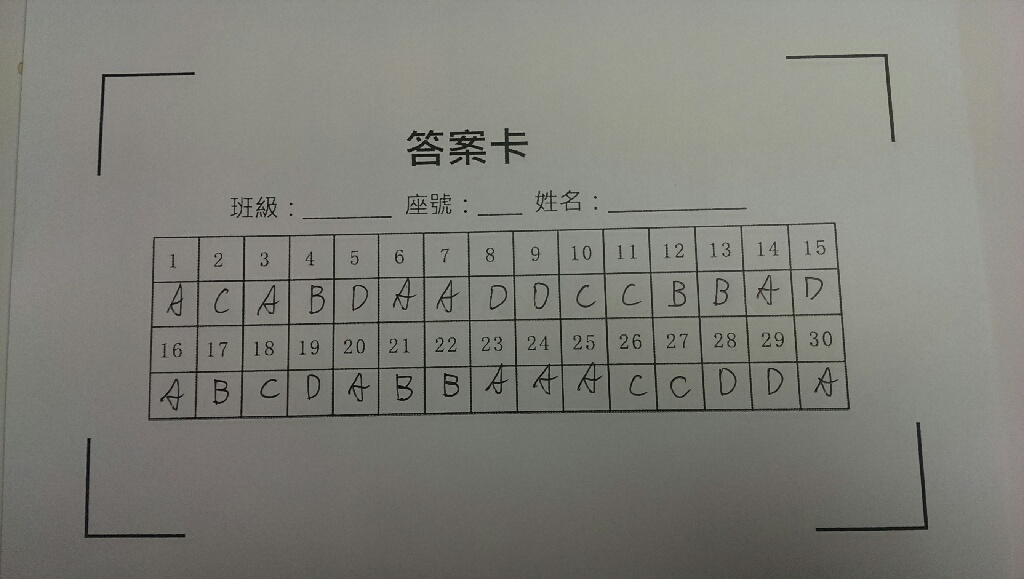 答案卡
班級：_______ 座號：____ 姓名：___________
1 2 3 4 5 6 7 8 9 10 11 12 13 14 15
A C A B D A A D D C C B B A D
16 17 18 19 20 21 22 23 24 25 26 27 28 29 30
A B C D A B B A A A C C D D A